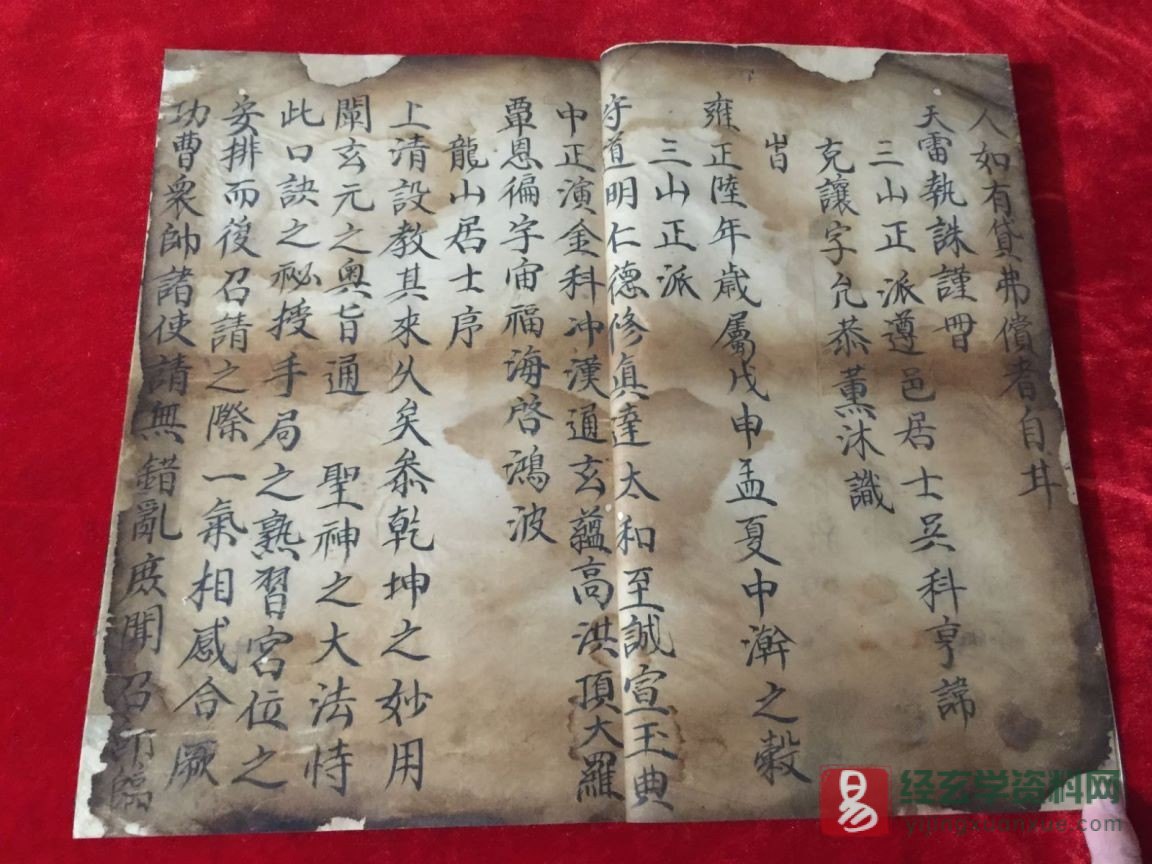 人如有貸弗償者自甘
天雷執誅謹冊
三山正派遵邑居士吳科亨諱
克讓字允恭薰沐識
旹
雍正陸年歲屬戊申孟夏中澣之穀
三山正派
守道明仁德修真達太和至誠宣玉典
中正演金科沖漢通玄蘊高洪頂大羅
覃恩徧宇宙福海啓鴻波
龍山居士序
上清設教其來久矣叅乾坤之妙用
闡玄元之奧旨通 聖神之大法恃
此口訣之祕授手局之熟習宮位之
安排而後召請之際一氣相感合厥
功曹衆帥諸使請無錯亂庶聞召而臨
易 经玄学资料网
yijingxuanxue.com